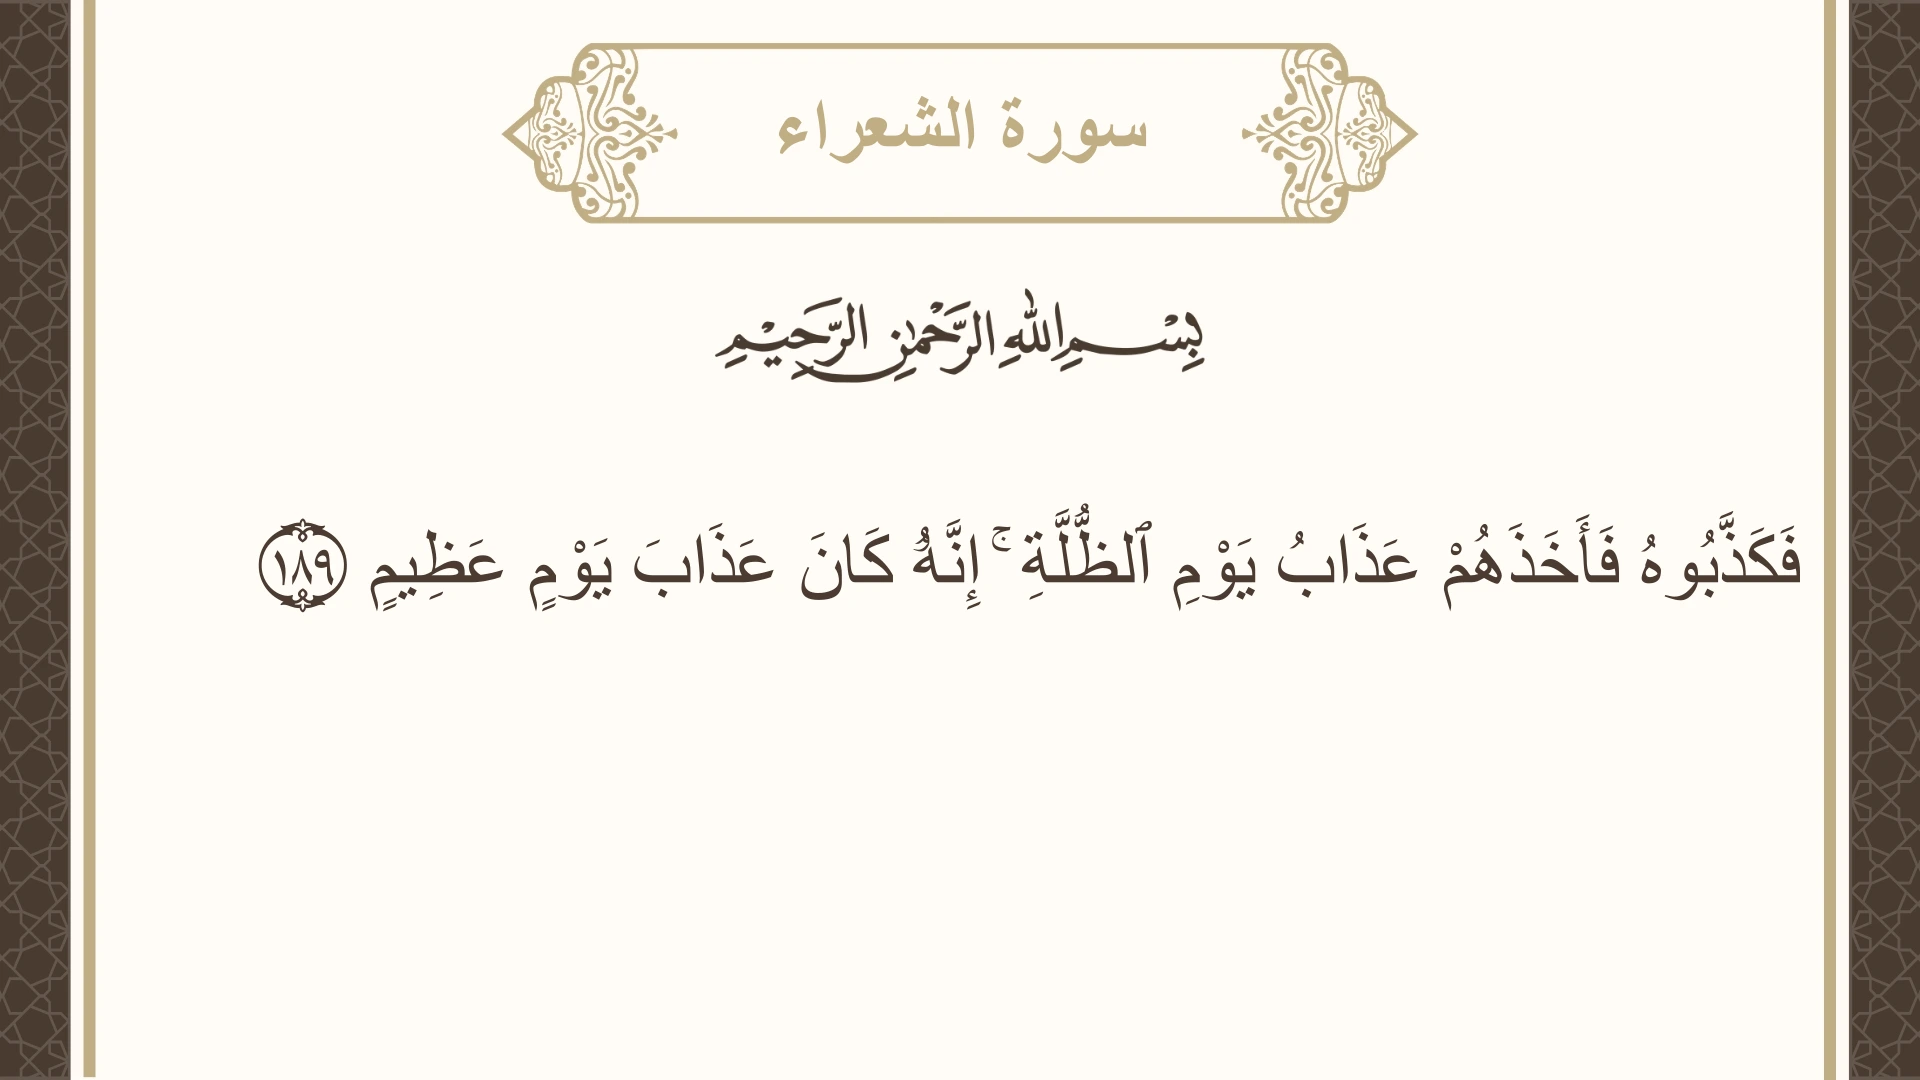 سورة الشعراء
بِسْمِ اللهِ الرَّحْمٰنِ الرَّحِيْمِ
فَكَذَّبُوهُ فَأَخَذَهُمْ عَذَابُ يَوْمِ ٱلظُّلَّةِ ۚ إِنَّهُۥ كَانَ عَذَابَ يَوْمٍ عَظِيمٍ ١٨٩